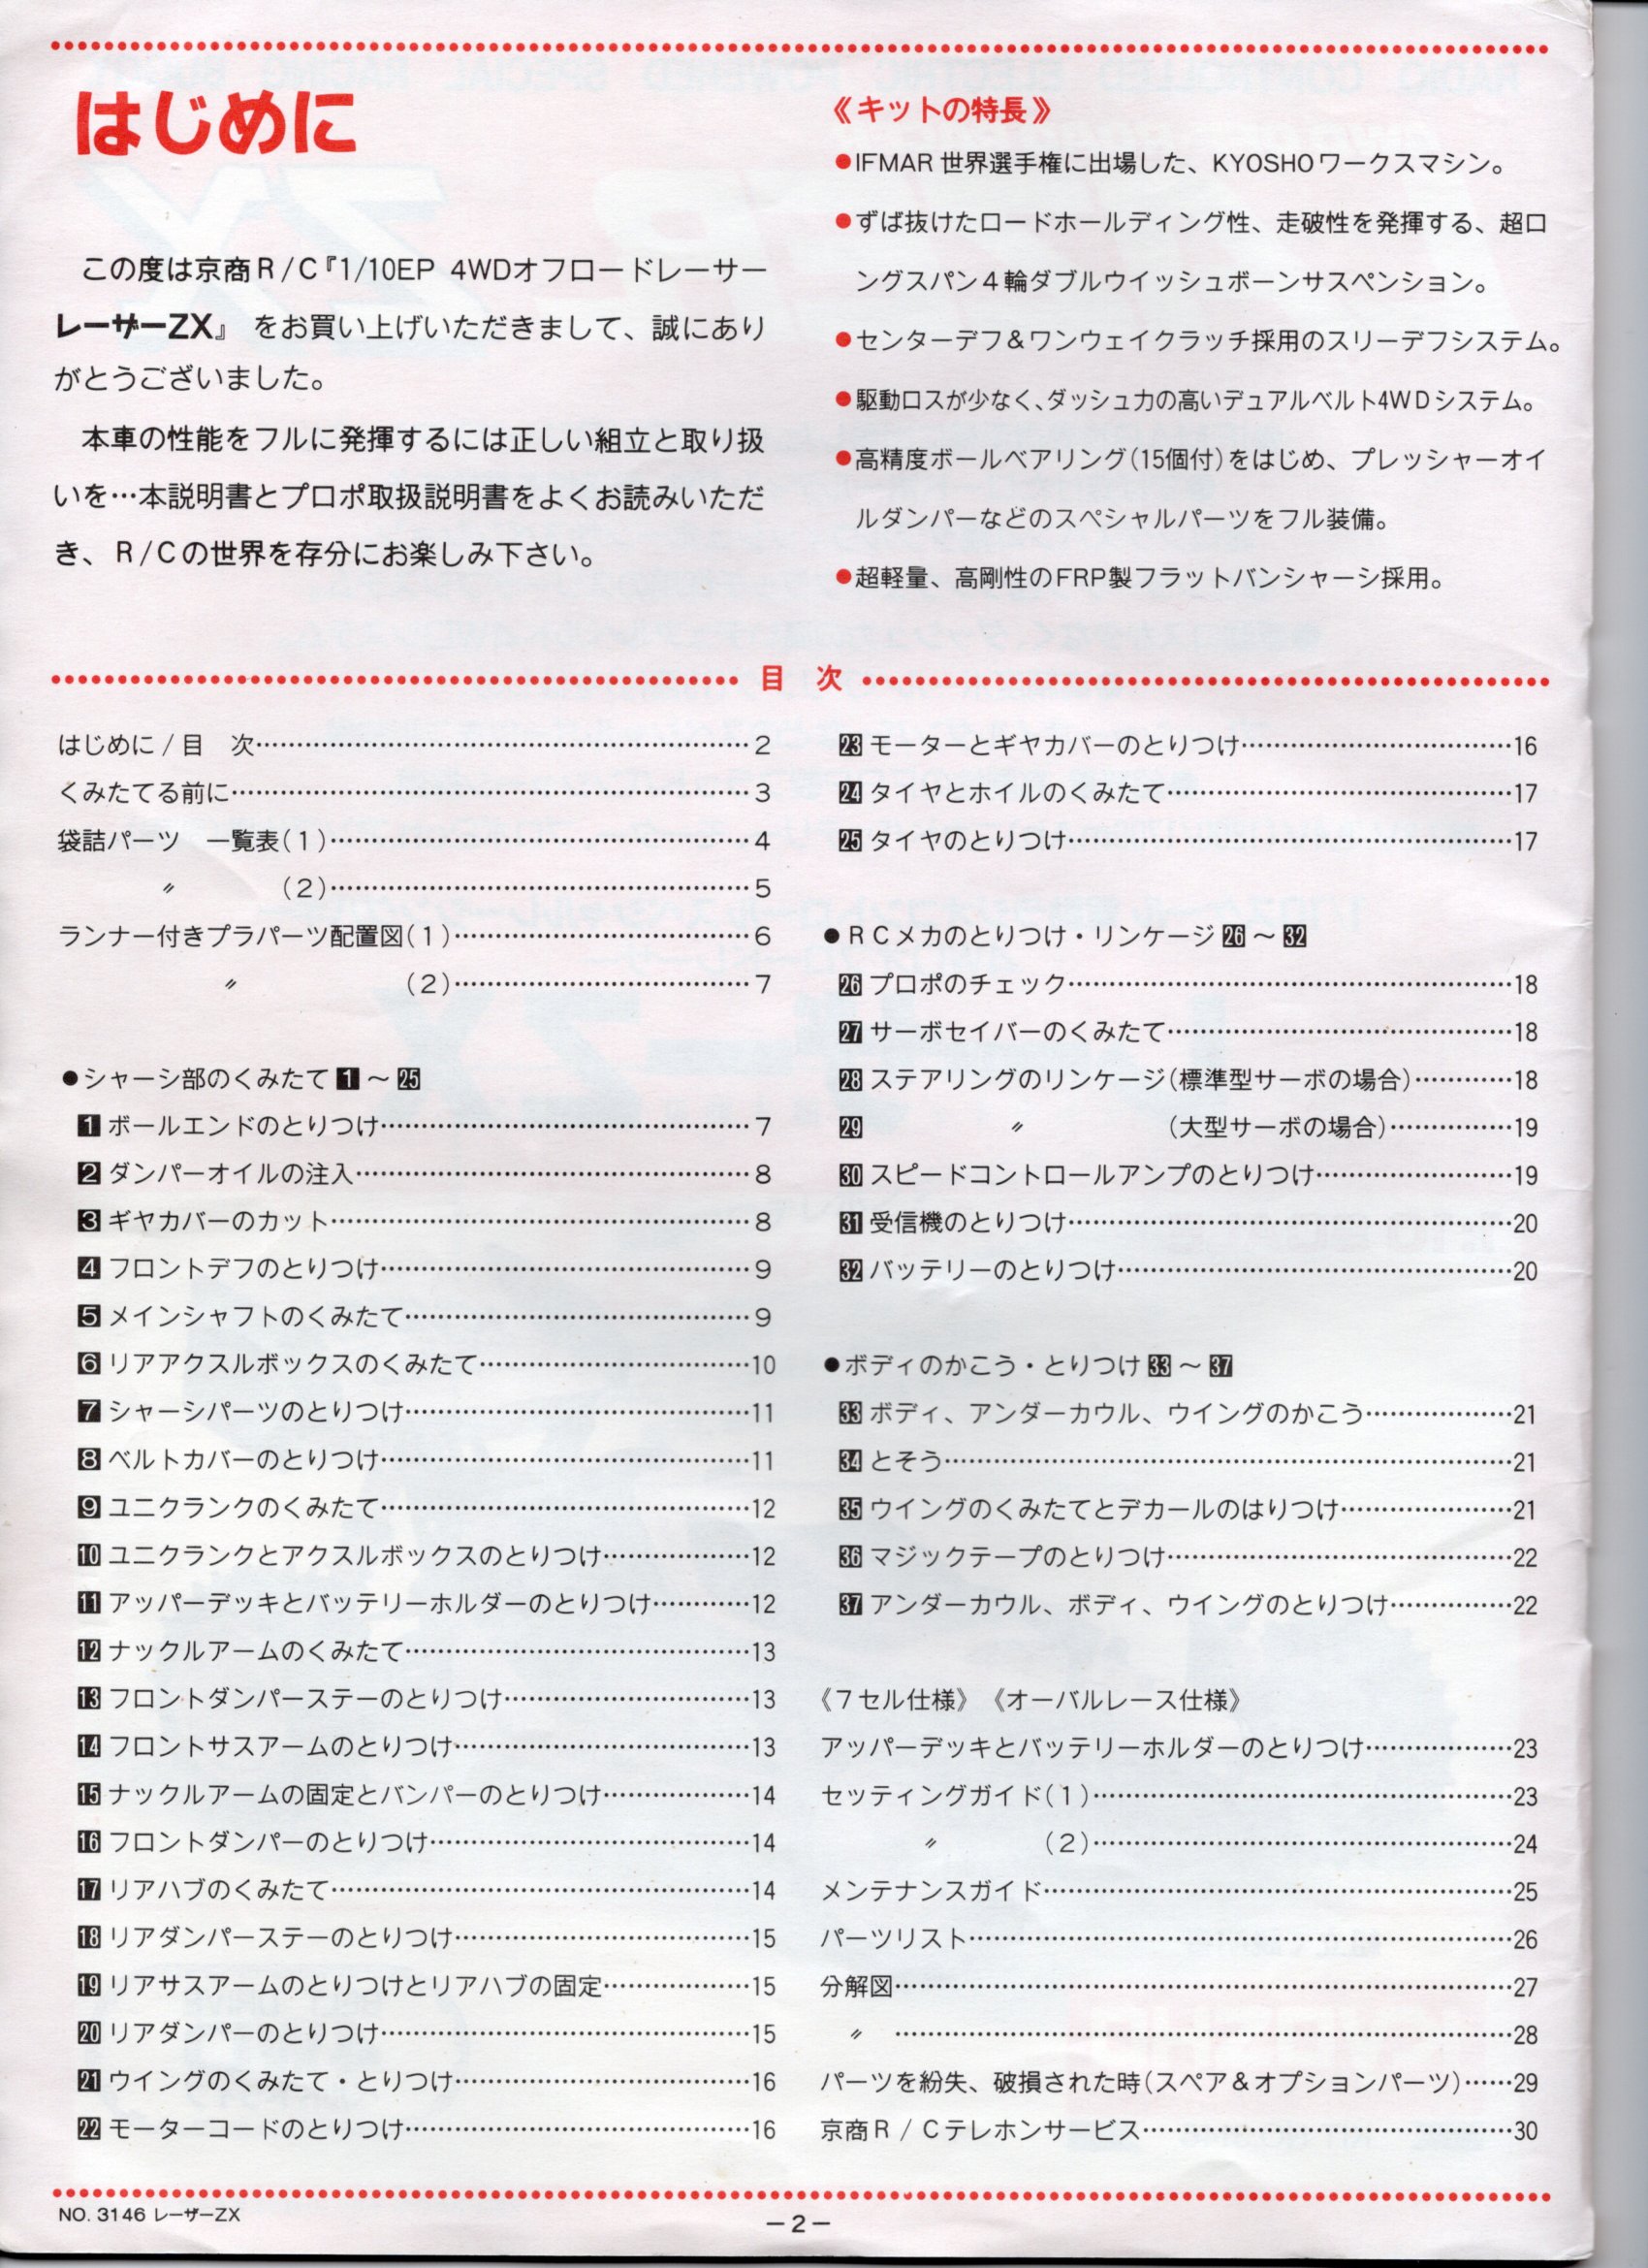 はじめに
この度は京商R/C『1/10EP 4WDオフロードレーサー
レーザーZX』 をお買い上げいただきまして、誠にあり
がとうございました。
本車の性能をフルに発揮するには正しい組立と取り扱
いを…本説明書とプロポ取扱説明書をよくお読みいただ
き、R/Cの世界を存分にお楽しみ下さい。
《キットの特長》
●IFMAR世界選手権に出場した、KYOSHOワークスマシン。
●ずば抜けたロードホールディング性、走破性を発揮する、超ロ
ングスパン4輪ダブルウイッシュボーンサスペンション。
●センターデフ&ワンウェイクラッチ採用のスリーデフシステム。
●駆動ロスが少なく、ダッシュ力の高いデュアルベルト4WDシステム。
●高精度ボールベアリング(15個付)をはじめ、プレッシャーオイ
ルダンパーなどのスペシャルパーツをフル装備。
●超軽量、高剛性のFRP製フラットパンシャーシ採用。
目 次
はじめに/目 次…………2
くみたてる前に…………3
袋詰パーツ 一覧表(1)…………4
〃 (2)…………5
ランナー付きプラパーツ配置図(1)…………6
〃 (2)…………7
●シャーシ部のくみたて 1 ~ 25
1 ボールエンドのとりつけ…………7
2 ダンパーオイルの注入…………8
3 ギヤカバーのカット…………8
4 フロントデフのとりつけ…………9
5 メインシャフトのくみたて…………9
6 リアアクスルボックスのくみたて…………10
7 シャーシパーツのとりつけ…………11
8 ベルトカバーのとりつけ…………11
9 ユニクランクのくみたて…………12
10 ユニクランクとアクスルボックスのとりつけ…………12
11 アッパーデッキとバッテリーホルダーのとりつけ…………12
12 ナックルアームのくみたて…………13
13 フロントダンパーステーのとりつけ…………13
14 フロントサスアームのとりつけ…………13
15 ナックルアームの固定とバンパーのとりつけ…………14
16 フロントダンパーのとりつけ…………14
17 リアハブのくみたて…………14
18 リアダンパーステーのとりつけ…………15
19 リアサスアームのとりつけとリアハブの固定…………15
20 リアダンパーのとりつけ…………15
21 ウイングのくみたて・とりつけ…………16
22 モーターコードのとりつけ…………16
23 モーターとギヤカバーのとりつけ…………16
24 タイヤとホイルのくみたて…………17
25 タイヤのとりつけ…………17
●RCメカのとりつけ・リンケージ 26 ~ 32
26 プロポのチェック…………18
27 サーボセイバーのくみたて…………18
28 ステアリングのリンケージ(標準型サーボの場合)…………18
29 〃 (大型サーボの場合)…………19
30 スピードコントロールアンプのとりつけ…………19
31 受信機のとりつけ…………20
32 バッテリーのとりつけ…………20
●ボディのかこう・とりつけ 33 ~ 37
33 ボディ、アンダーカウル、ウイングのかこう…………21
34 とそう…………21
35 ウイングのくみたてとデカールのはりつけ…………21
36 マジックテープのとりつけ…………22
37 アンダーカウル、ボディ、ウイングのとりつけ…………22
《7セル仕様》《オーバルレース仕様》
アッパーデッキとバッテリーホルダーのとりつけ…………23
セッティングガイド(1)…………23
〃 (2)…………24
メンテナンスガイド…………25
パーツリスト…………26
分解図…………27
〃 …………28
パーツを紛失、破損された時(スペア&オプションパーツ)……29
京商R/Cテレホンサービス…………30
NO. 3146 レーザーZX
－2－